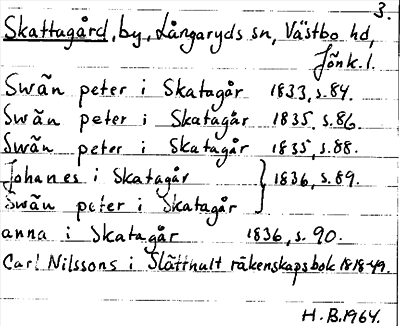 3.
Skattagård, by, Långaryds sn, Västbo hd,
Jönk. l.
Swän peter i Skatagår 1833, s. 84.
Swän peter i Skatagår 1835, s. 86.
Swän peter i Skatagår 1835, s. 88.
Johanes i Skatagår } 1836, s. 89.
Swän peter i Skatagår
anna i Skatagår 1836, s. 90.
Carl Nilssons i Slätthult räkenskapsbok 1818-49.
H. B. 1964.